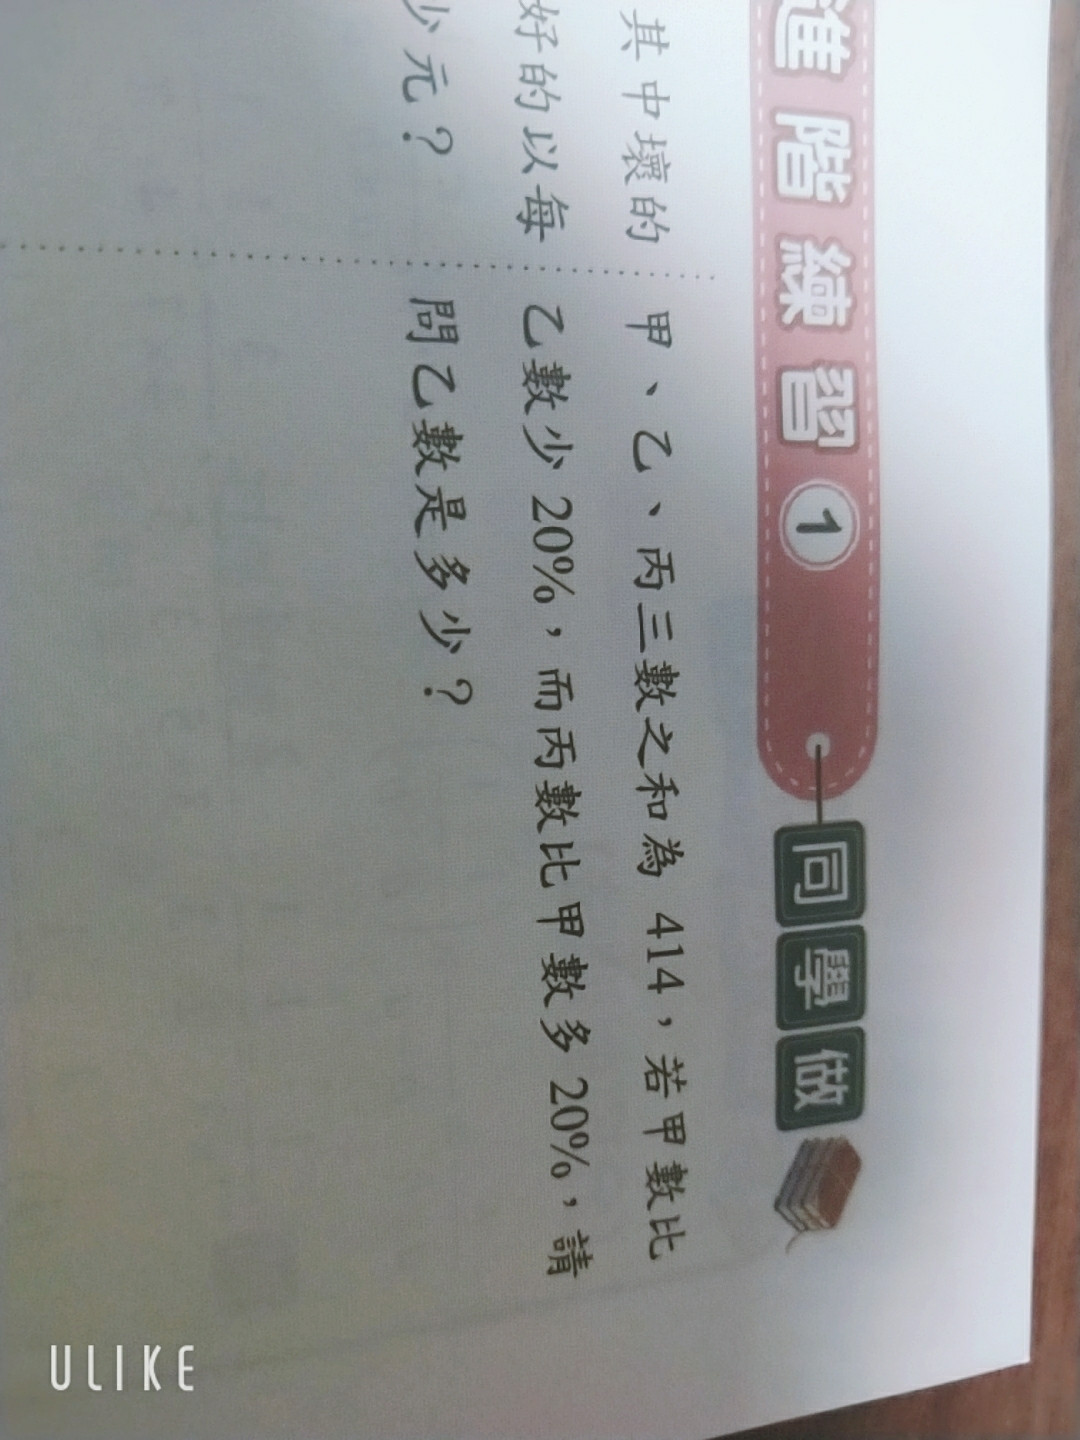 進階練習 1 同學做
其中壞的
好的以每
少元？
甲、乙、丙三數之和為 414，若甲數比
乙數少 20%，而丙數比甲數多 20%，請
問乙數是多少？
ULIKE